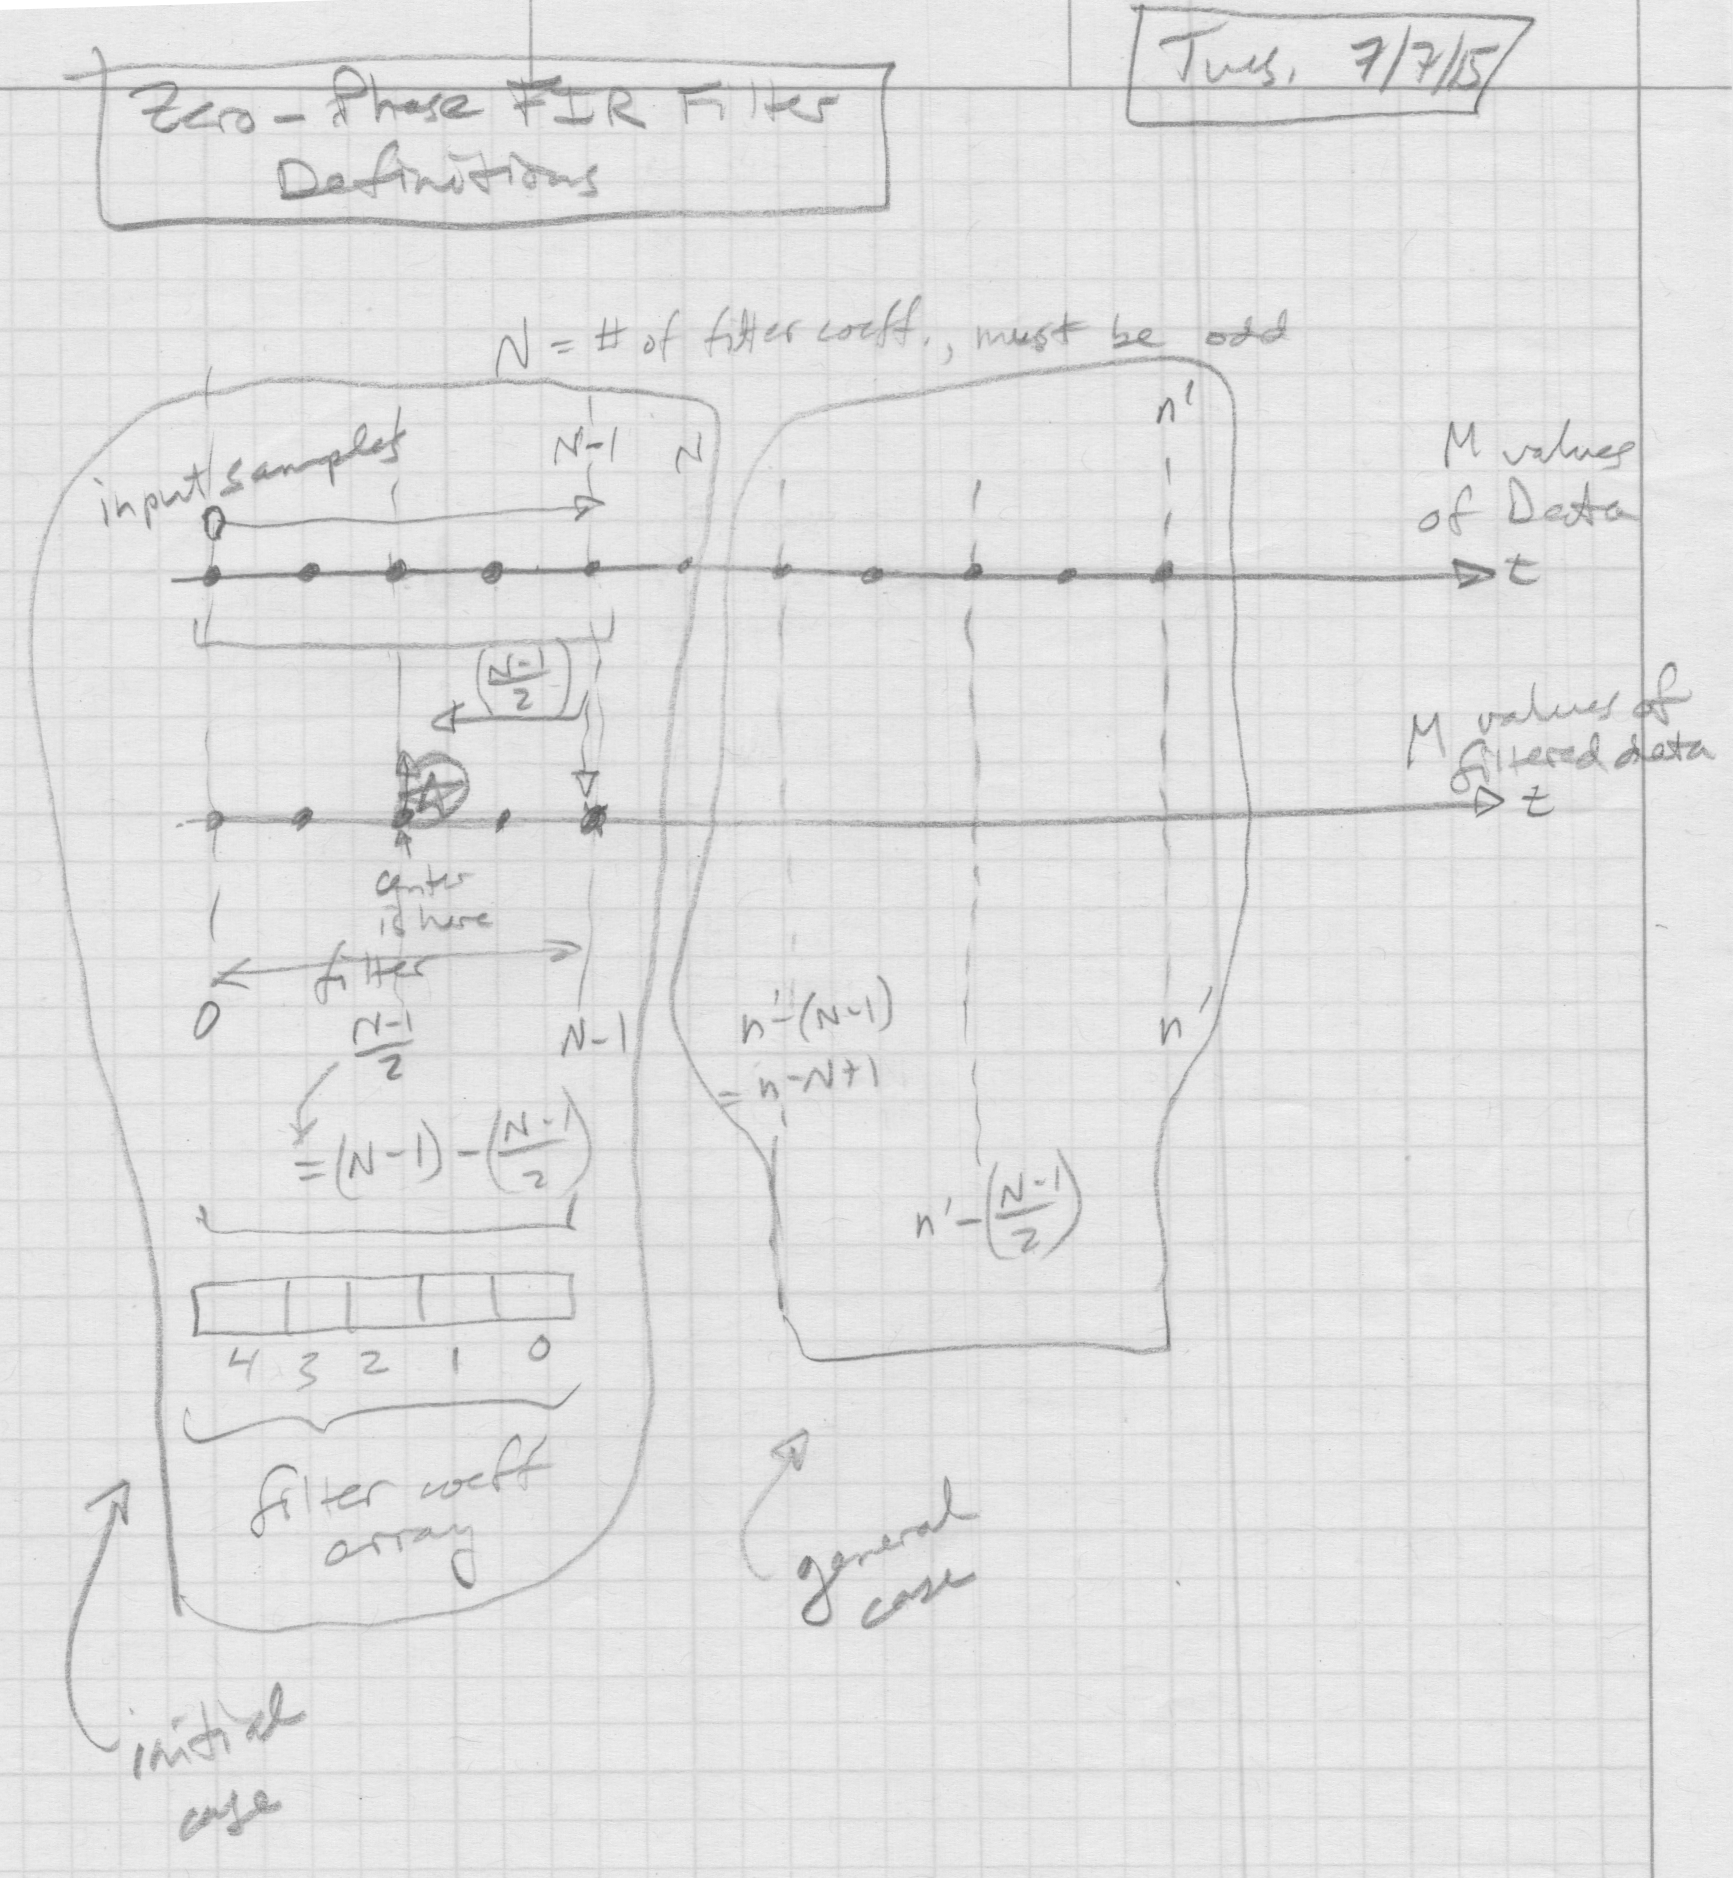 Tues. 7/7/15
Zero-Phase FIR Filter
Definitions
N = # of filter coeff., must be odd
input samples
0
N-1
N
n'
M values
of Data
t
(N-1/2)
M values of
filtered data
t
center
is here
filter
0
N-1/2
N-1
= (N-1) - (N-1/2)
n'-(N-1)
= n-N+1
n'
n'-(N-1/2)
4 3 2 1 0
filter coeff
array
general
case
initial
case